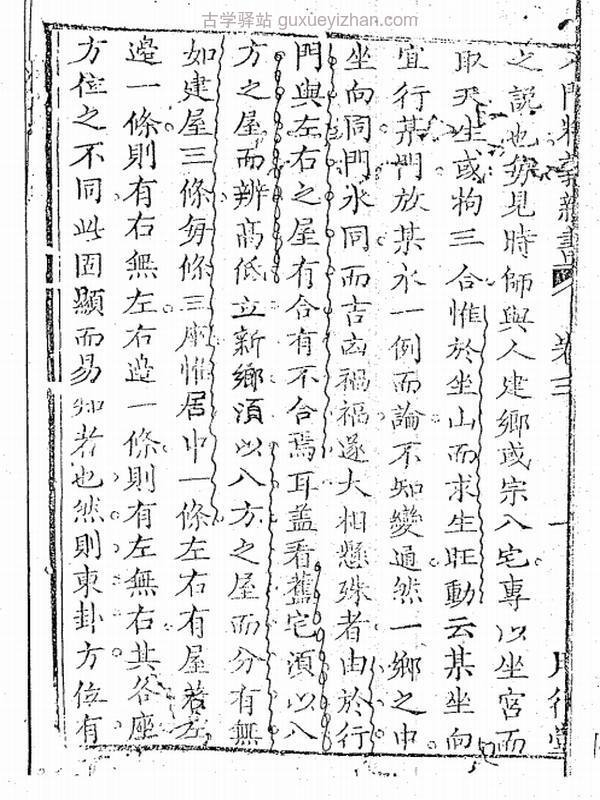 古学驿站 guxueyizhan.com
八門精義新書 卷三 一
之說也竊見時師與人建鄉或宗八宅專以坐宮而
取天生或拘三合惟於坐山而求生旺動云某坐向
宜行某門放某水一例而論不知變通然一鄉之中
坐向同門水同而吉凶禍福遂大相懸殊者由於行
門與左右之屋有合有不合焉耳蓋看舊宅須以八
方之屋而辨高低立新鄉須以八方之屋而分有無
如建屋三條每條三座惟居中一條左右有屋若左
邊一條則有右無左右邊一條則有左無右其各座
方位之不同此固顯而易知者也然則東卦方位有